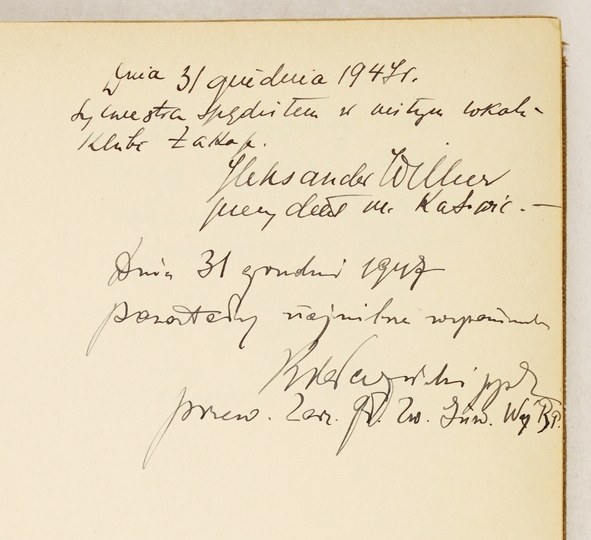 Dnia 31 grudnia 1947r.
Sylwestra spędziłem w miłym lokalu
Klubu Zakop.
Aleksander Willner
prezydent m. Katowic. —
Dnia 31 grudni 1947
pozostały najmilsze wspomnienia
przew. Zarz. Gł. Zw. Inw. Woj.